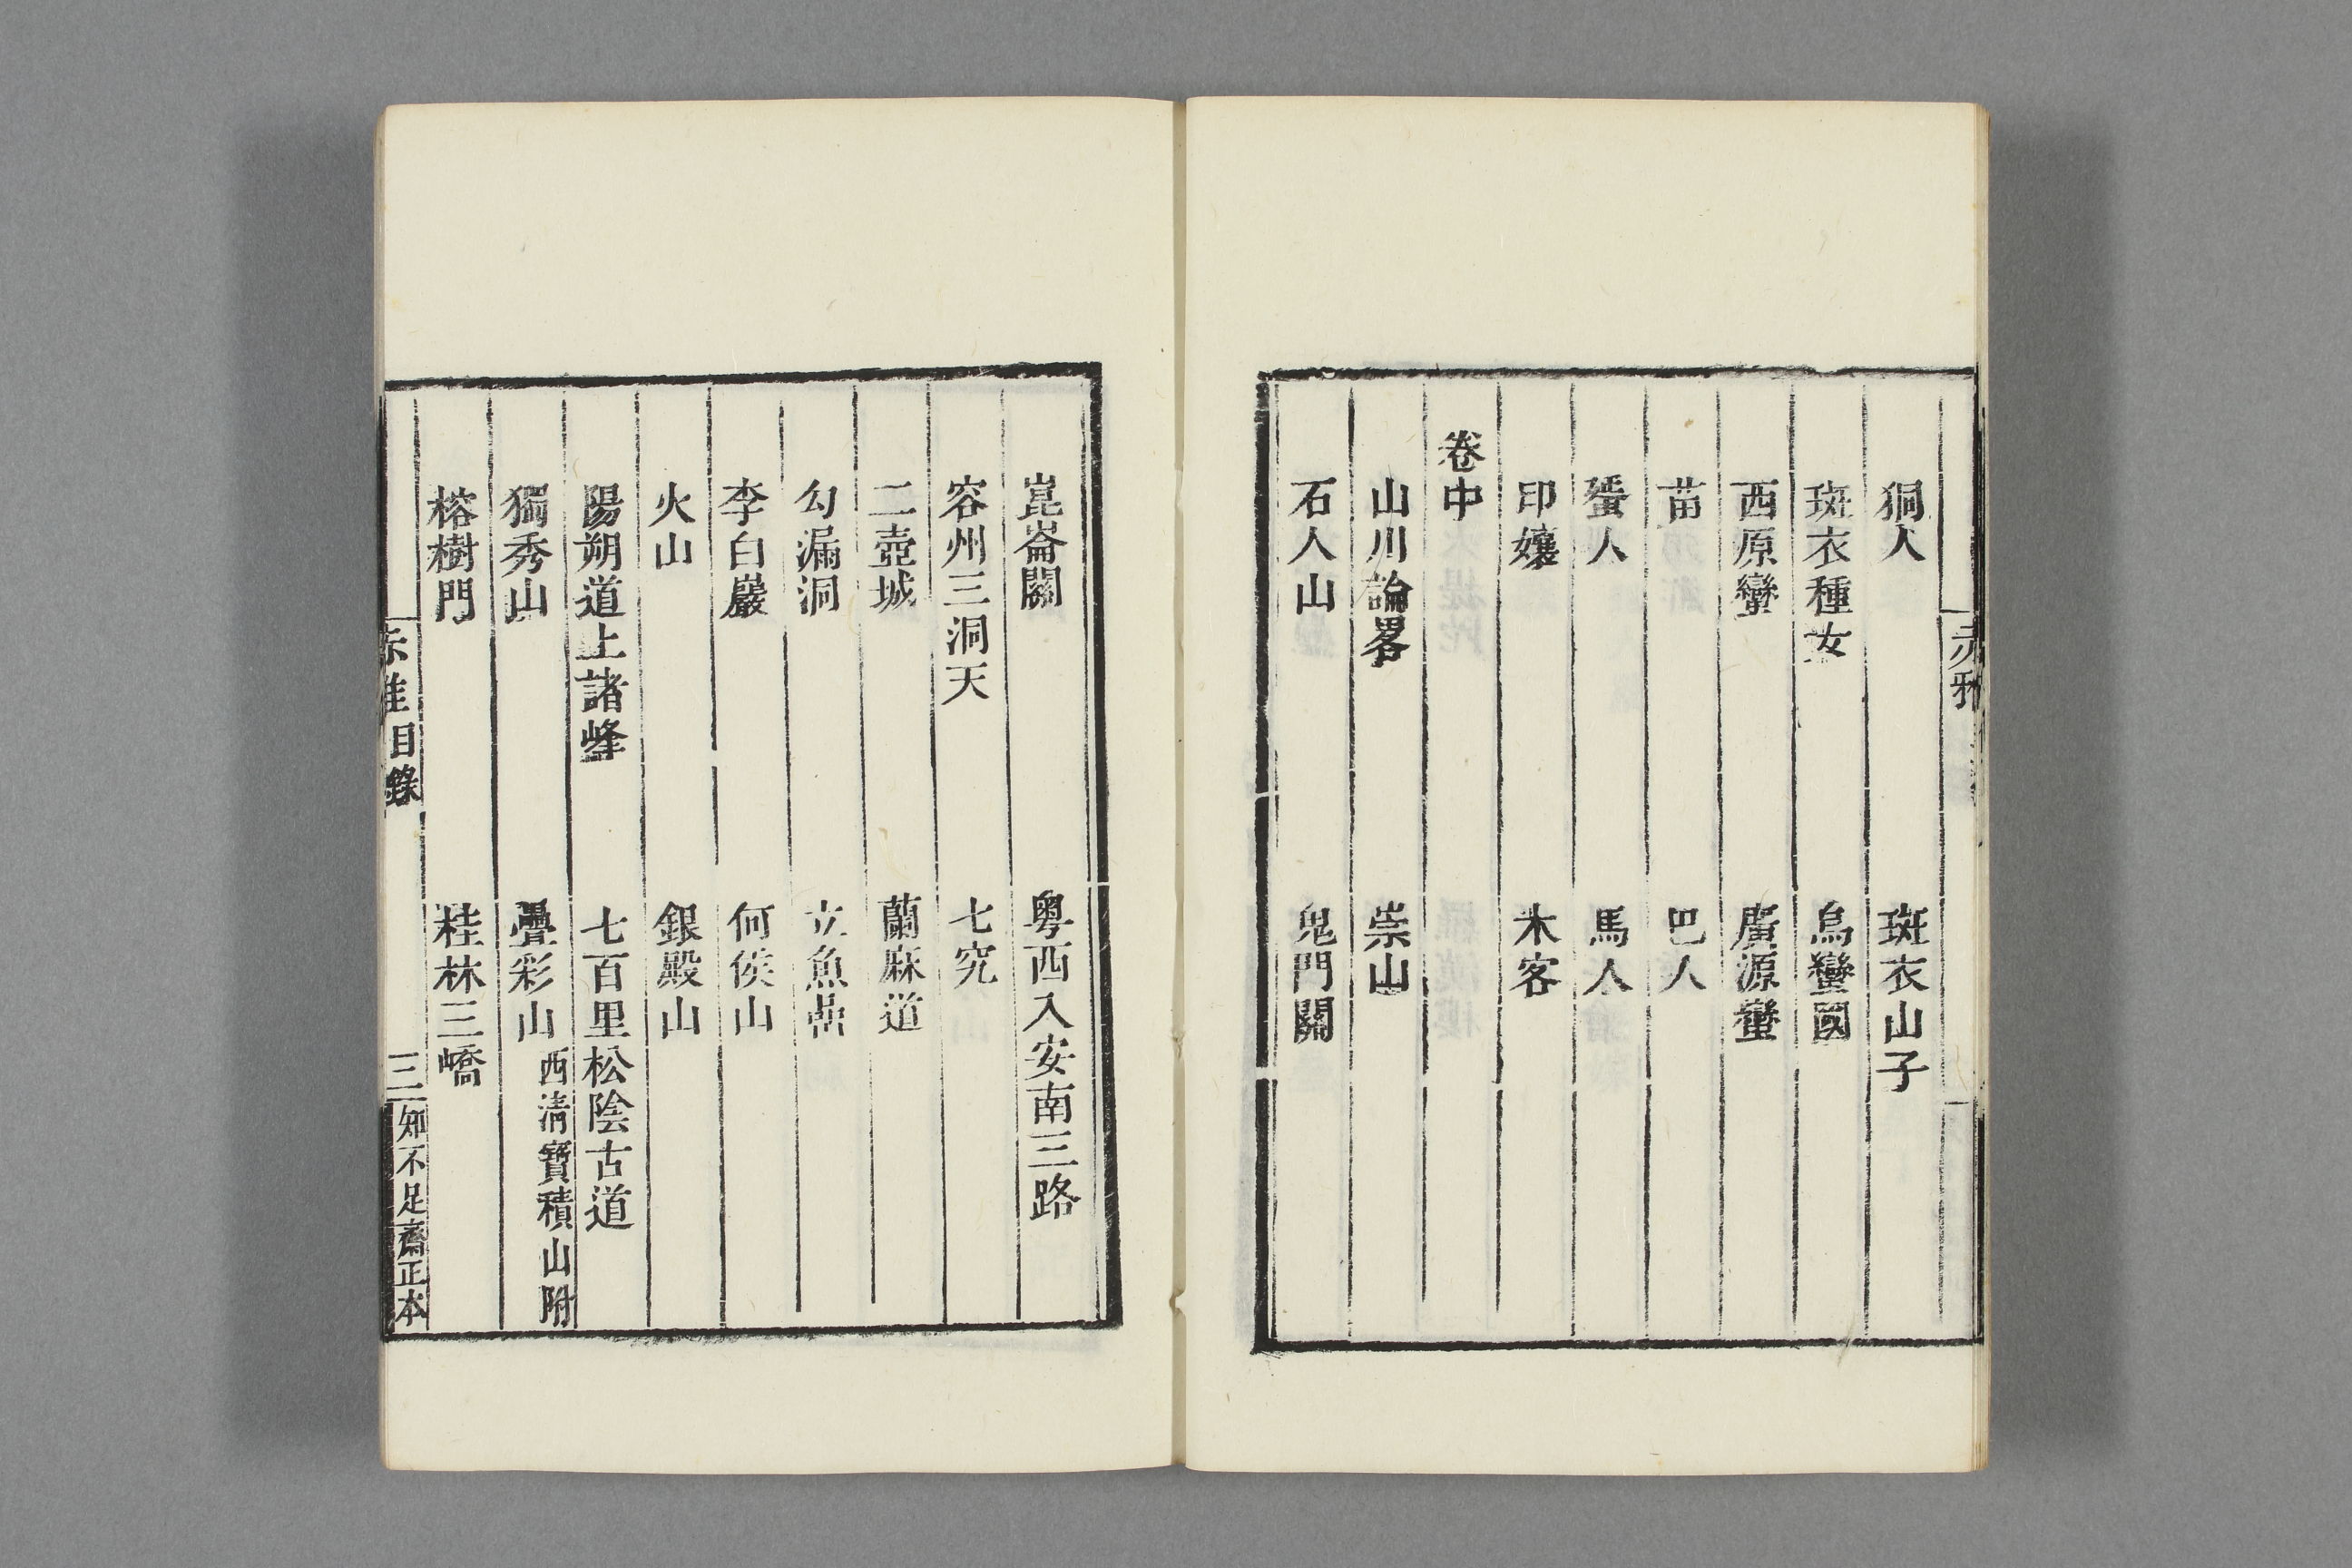 赤雅
狪人　斑衣山子
斑衣種女　烏蠻國
西原蠻　廣源蠻
苗　巴人
蜑人　馬人
印孃　木客
卷中
山川論畧　崇山
石人山　鬼門關
崑崙關　粤西入安南三路
容州三洞天　七究
二壺城　蘭麻道
勾漏洞　立魚嵒
李白巖　何侯山
火山　銀殿山
陽朔道上諸峰　七百里松陰古道
獨秀山　疊彩山西清寶積山附
榕樹門　桂林三嶠
赤雅目錄　三　知不足齋正本